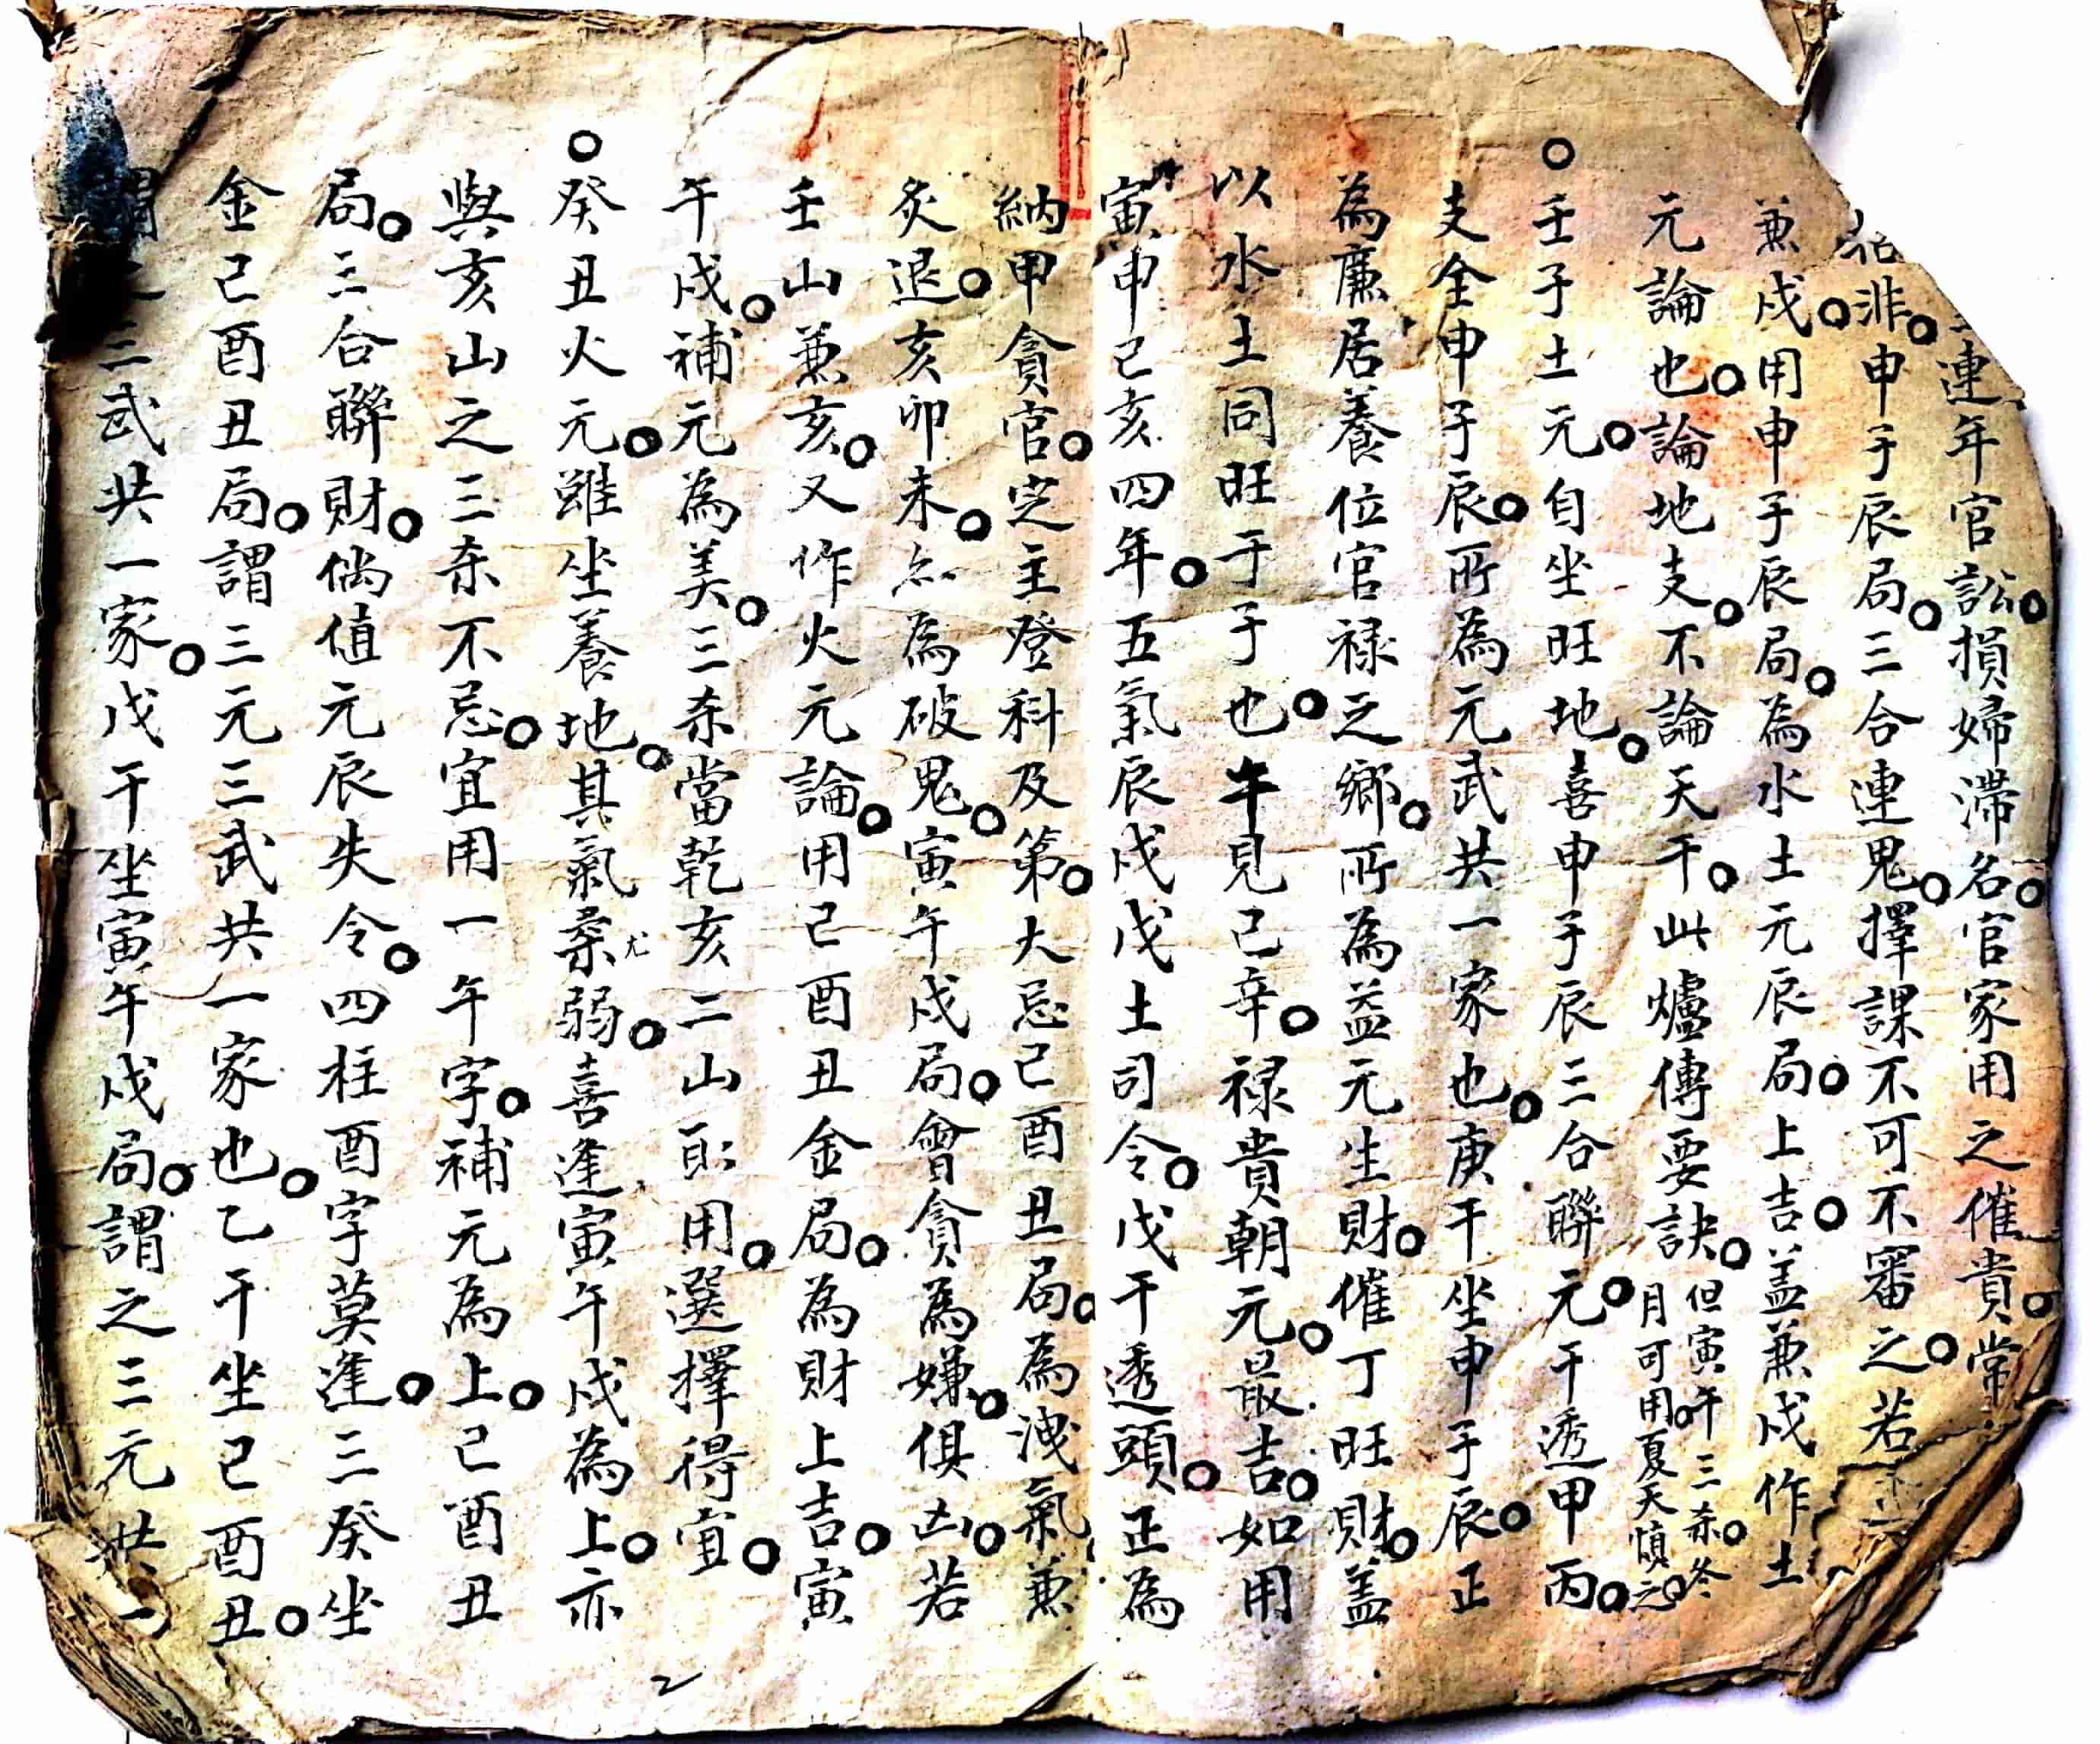 連年官訟。損婦滯名。官家用之催貴。常
非。申子辰局。三合連鬼。擇課不可不審之。若
兼戌。用申子辰局。為水土元辰局。上吉。盖兼戌作土
元論也。論地支。不論天干。此爐傳要訣。但寅午三杀。冬
月可用。夏天慎之。
○壬子土元。自坐旺地。喜申子辰三合聯元。干透甲丙。
支全申子辰。所為元武共一家也。庚干坐申子辰。正
為廉居養位官禄之鄉。所為益元生財。催丁旺財。盖
以水土同旺于子也。午見己辛。禄貴朝元。最吉。如用
寅申己亥四年。五氣辰戌戊土司令。戊干透頭。正為
納甲貪官。定主登科及第。大忌己酉丑局。為洩氣兼
炙退。亥卯未。為破鬼。寅午戌局。會貪為嫌。俱凶。若
壬山兼亥。又作火元論。用己酉丑金局。為財上吉。寅
午戌。補元為美。三杀當乾亥二山取用。選擇得宜。
○癸丑火元。雖坐養地。其氣尤弱。喜逢寅午戌為上。亦
與亥山之三杀不忌。宜用一午字。補元為上。己酉丑
局。三合聯財。倘值元辰失令。四柱酉字莫逢。三癸坐
金己酉丑局。謂三元三武共一家也。乙干坐己酉丑。
三武共一家。戊干坐寅午戌局。謂之三元共一